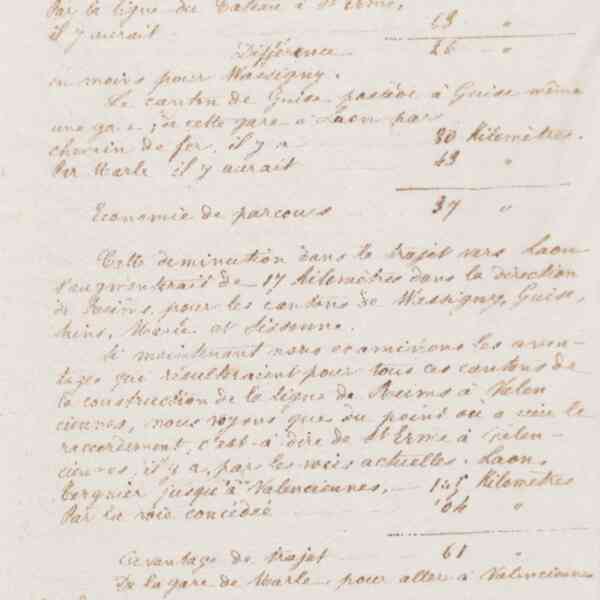 Par la ligne du Cateau à St Erme,
il y aurait 63 "
Différence 26 "
en moins pour Wassigny.
Le canton de Guise possède à Guise même
une gare; de cette gare à Laon par
chemin de fer, il y a 80 Kilomètres.
Par Marle il y aurait 43 "
Economie de parcours 37 "
Cette deminution dans le trajet vers Laon
s'augmenterait de 17 Kilomètres dans la direction
de Reims, pour les cantons de Wassigny, Guise,
Sains, Marle et Sissonne.
Si maintenant nous examinons les avan-
tages qui résulteraient pour tous ces cantons de
la construction de la ligne de Reims à Valen
ciennes, nous voyons que du point où a lieu le
raccordement, c'est-à dire de St Erme à Valen-
ciennes, il y a, par les voies actuelles, Laon,
Tergnier jusqu'à Valenciennes, 165 Kilomètres
Par la voie concédée 104 "
Avantage de trajet 61 "
De la gare de Marle pour aller à Valenciennes